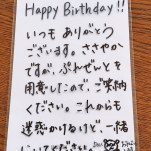 Happy Birthday!!
いつも ありがとう
ございます。ささやか
ですが、ぷれぜんとを
用意したので、ご笑納
ください。これからも
迷惑かけるけど、一緒
にいてくださいな。